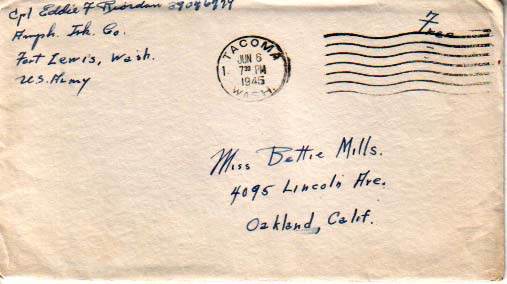 Cpl Eddie F Riordan
Amph. Trk. Co.
Fort Lewis, Wash.
U.S. Army
Free
TACOMA
1
JUN 6
7 30 PM
1945
WASH.
Miss Bettie Mills.
4095 Lincoln Ave.
Oakland, Calif.